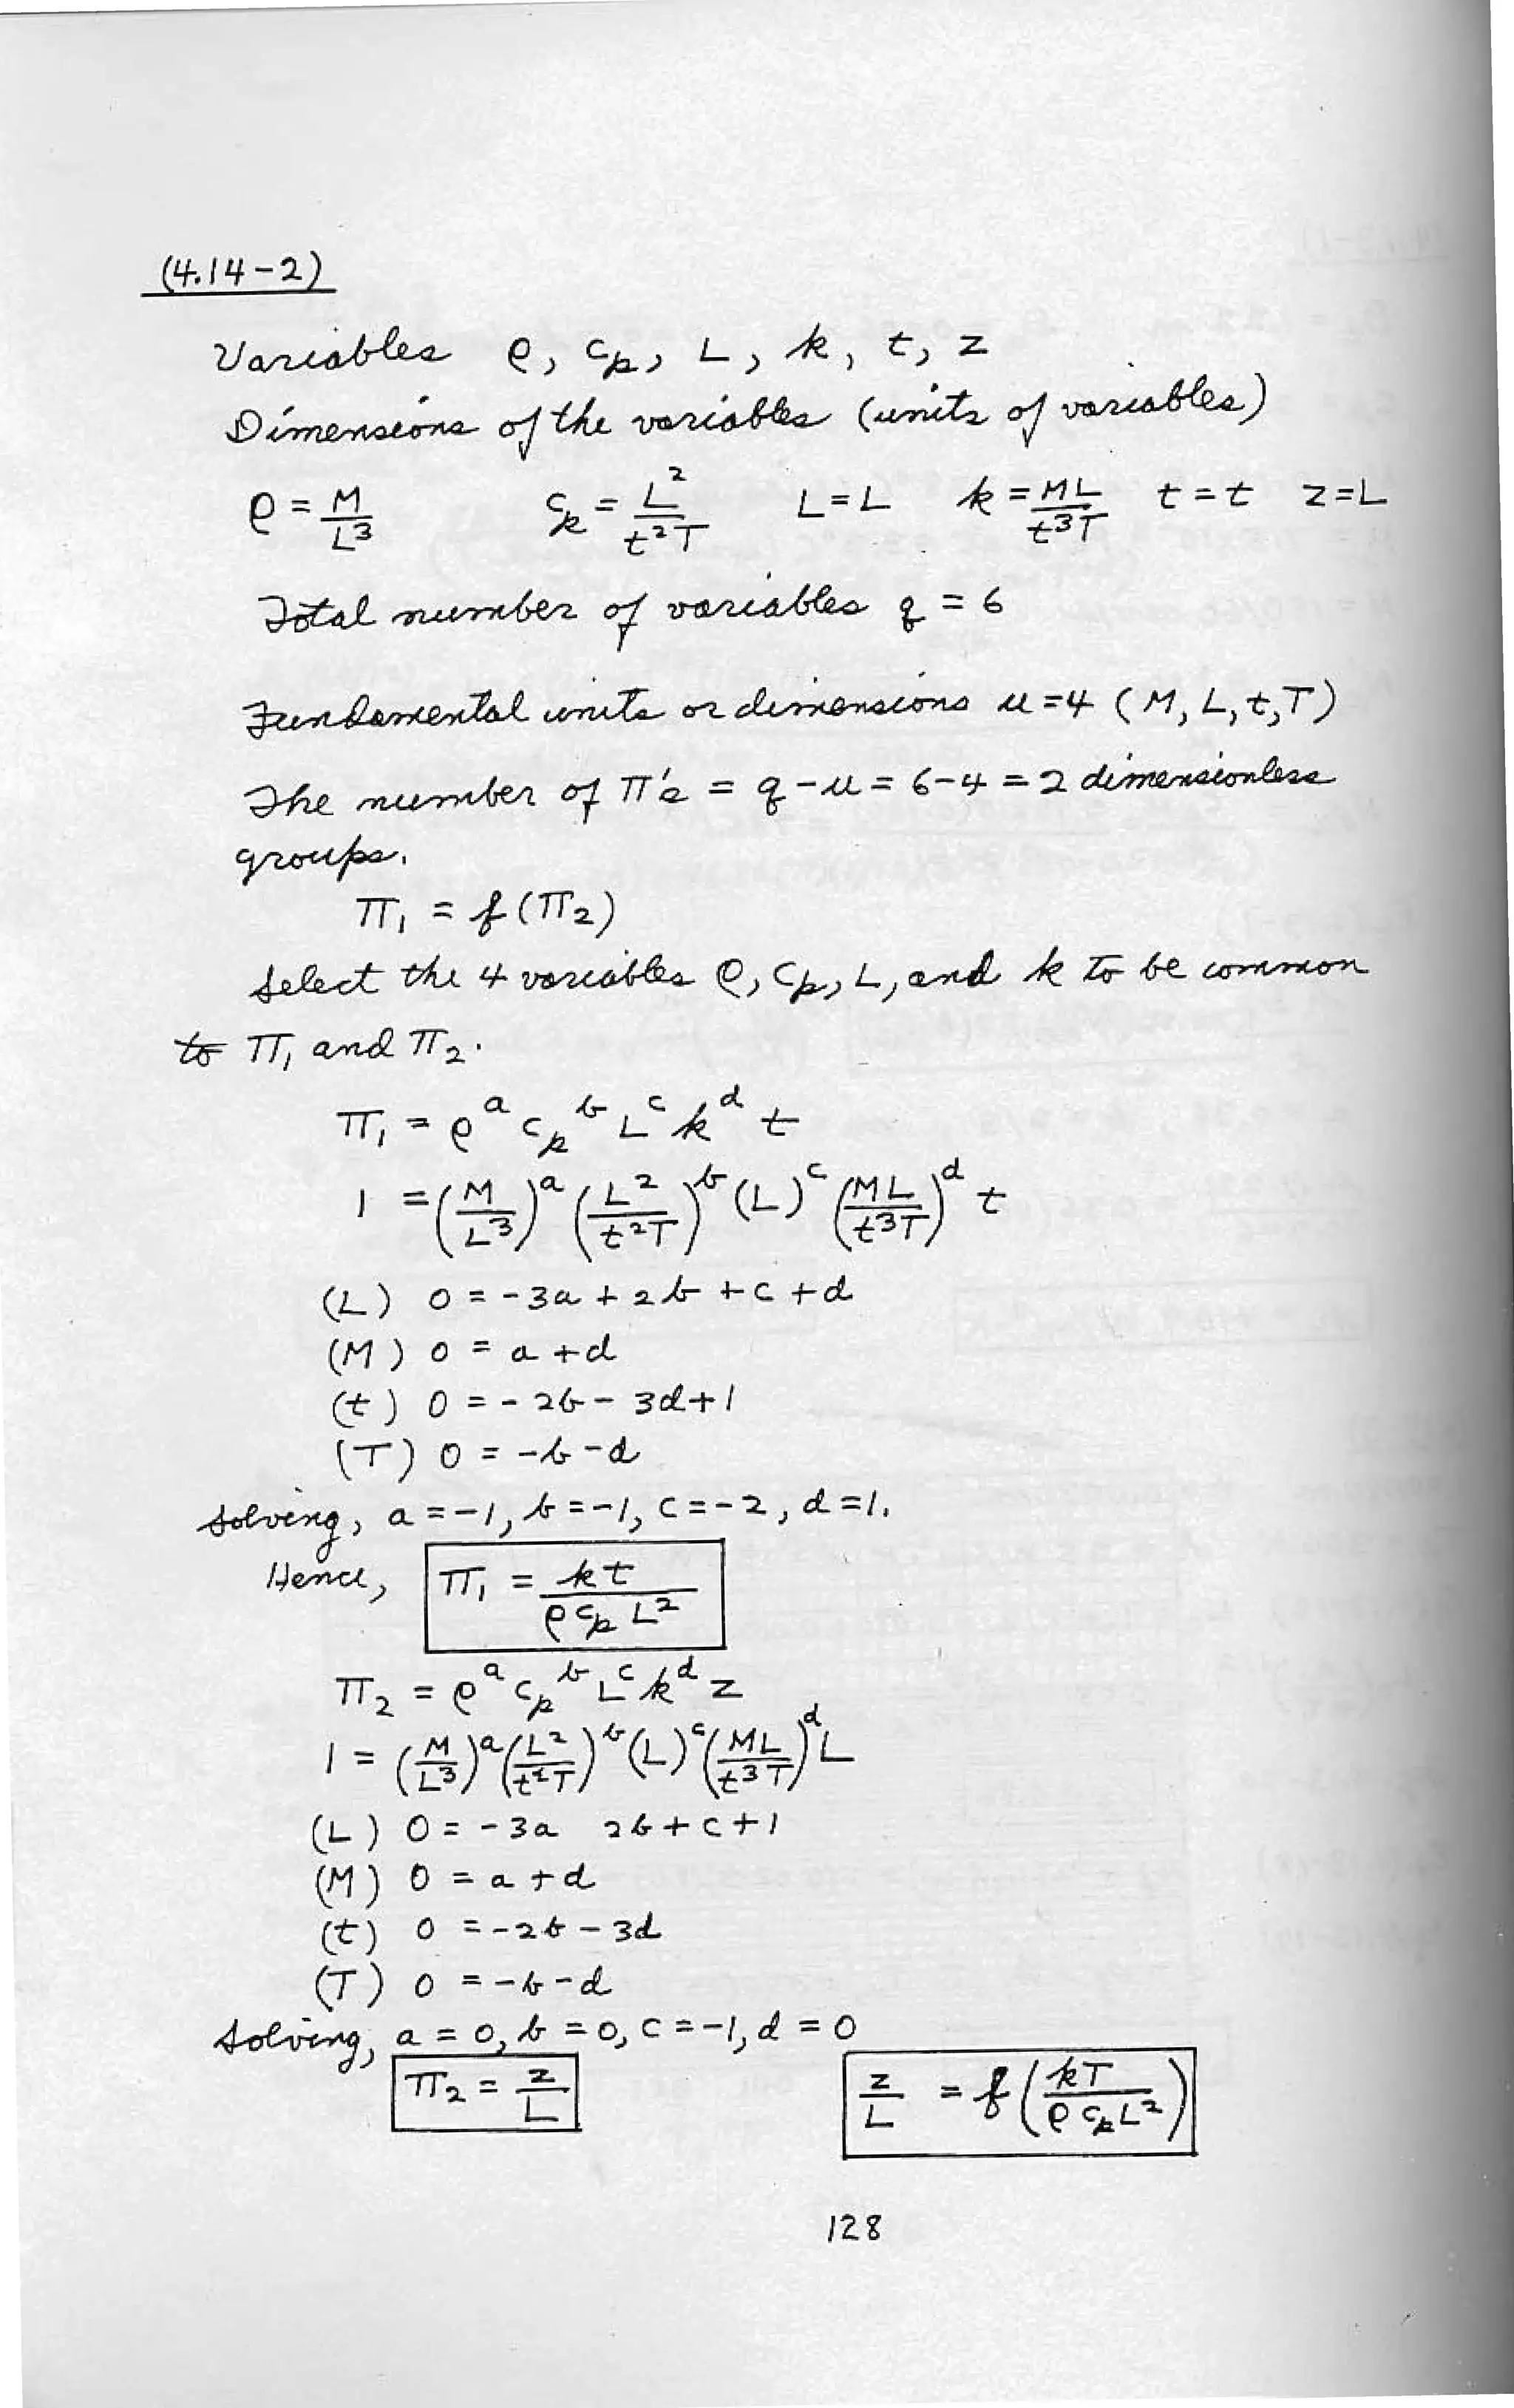 (4.14-2)
Variables ρ, cₚ, L, k, t, z
Dimensions of the variables (units of variables)
ρ = M/L³ cₚ = L²/t²T L = L k = ML/t³T t = t z = L
Total number of variables q = 6
Fundamental units or dimensions u = 4 (M, L, t, T)
The number of π's = q - u = 6 - 4 = 2 dimensionless
groups.
π₁ = f(π₂)
Select the 4 variables ρ, cₚ, L, and k to be common
to π₁ and π₂.
π₁ = ρᵃ cₚᵇ Lᶜ kᵈ t
1 = (M/L³)ᵃ (L²/t²T)ᵇ (L)ᶜ (ML/t³T)ᵈ t
(L) 0 = -3a + 2b + c + d
(M) 0 = a + d
(t) 0 = -2b - 3d + 1
(T) 0 = -b - d
Solving, a = -1, b = -1, c = -2, d = 1.
Hence, π₁ = kt/ρcₚL²
π₂ = ρᵃ cₚᵇ Lᶜ kᵈ z
1 = (M/L³)ᵃ (L²/t²T)ᵇ (L)ᶜ (ML/t³T)ᵈ L
(L) 0 = -3a 2b + c + 1
(M) 0 = a + d
(t) 0 = -2b - 3d
(T) 0 = -b - d
Solving, a = 0, b = 0, c = -1, d = 0
π₂ = z/L z/L = f(kT/ρcₚL²)
128